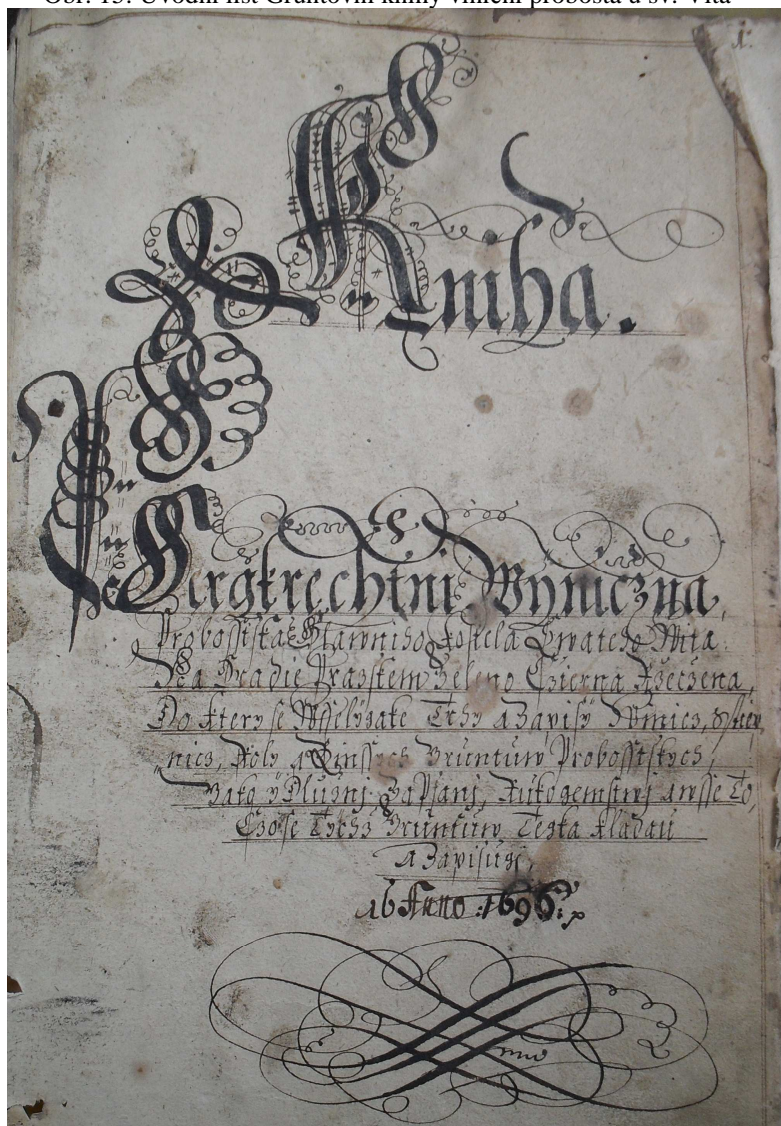 Obr. 15: Úvodní list Gruntovní knihy viniční probošta u sv. Víta
1.
Kniha.
Pergkrechtni Wyniczna,
Probosstska Hlawniho Kostela Swateho Wita
Na Hradie Prazskem Zeleno Czierna Rzeczena,
Do ktery se Wsselygake Trhy a Zapisy Winicz,
nicz, Roly a Ginssych Gruntuw Probosstskych,
Yako y Dluzni Zapsani, Rukogemstwj a wsse To,
Czo se Tiech Gruntuw Teyka kladau
a Zapisugi,
ab Anno :1696: